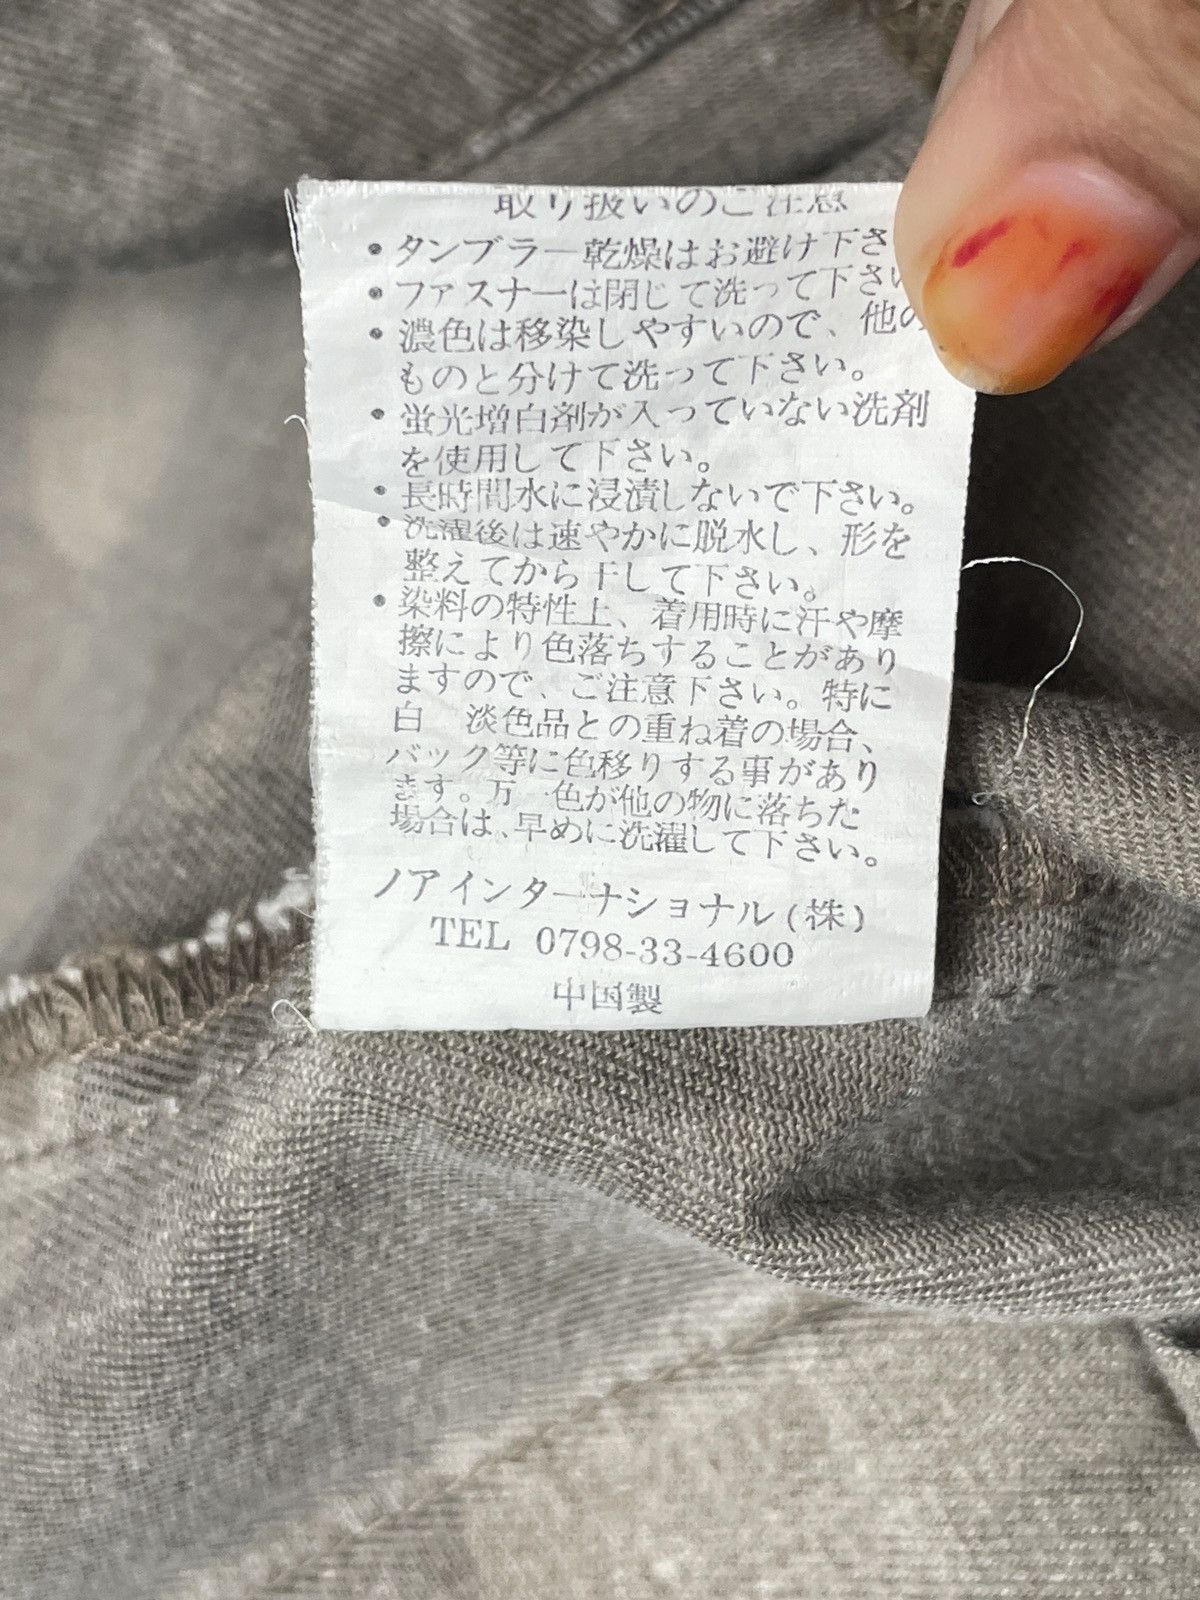 取り扱いのご注意
・タンブラー乾燥はお避け下さ
・ファスナーは閉じて洗って下さい
・濃色は移染しやすいので、他の
ものと分けて洗って下さい。
・蛍光増白剤が入っていない洗剤
を使用して下さい。
・長時間水に浸漬しないで下さい。
・洗濯後は速やかに脱水し、形を
整えてから干して下さい。
・染料の特性上、着用時に汗や摩
擦により色落ちすることがあり
ますので、ご注意下さい。特に
白 淡色品との重ね着の場合、
バック等に色移りする事があり
ます。万一色が他の物に落ちた
場合は、早めに洗濯して下さい。
ノアインターナショナル(株)
TEL 0798-33-4600
中国製